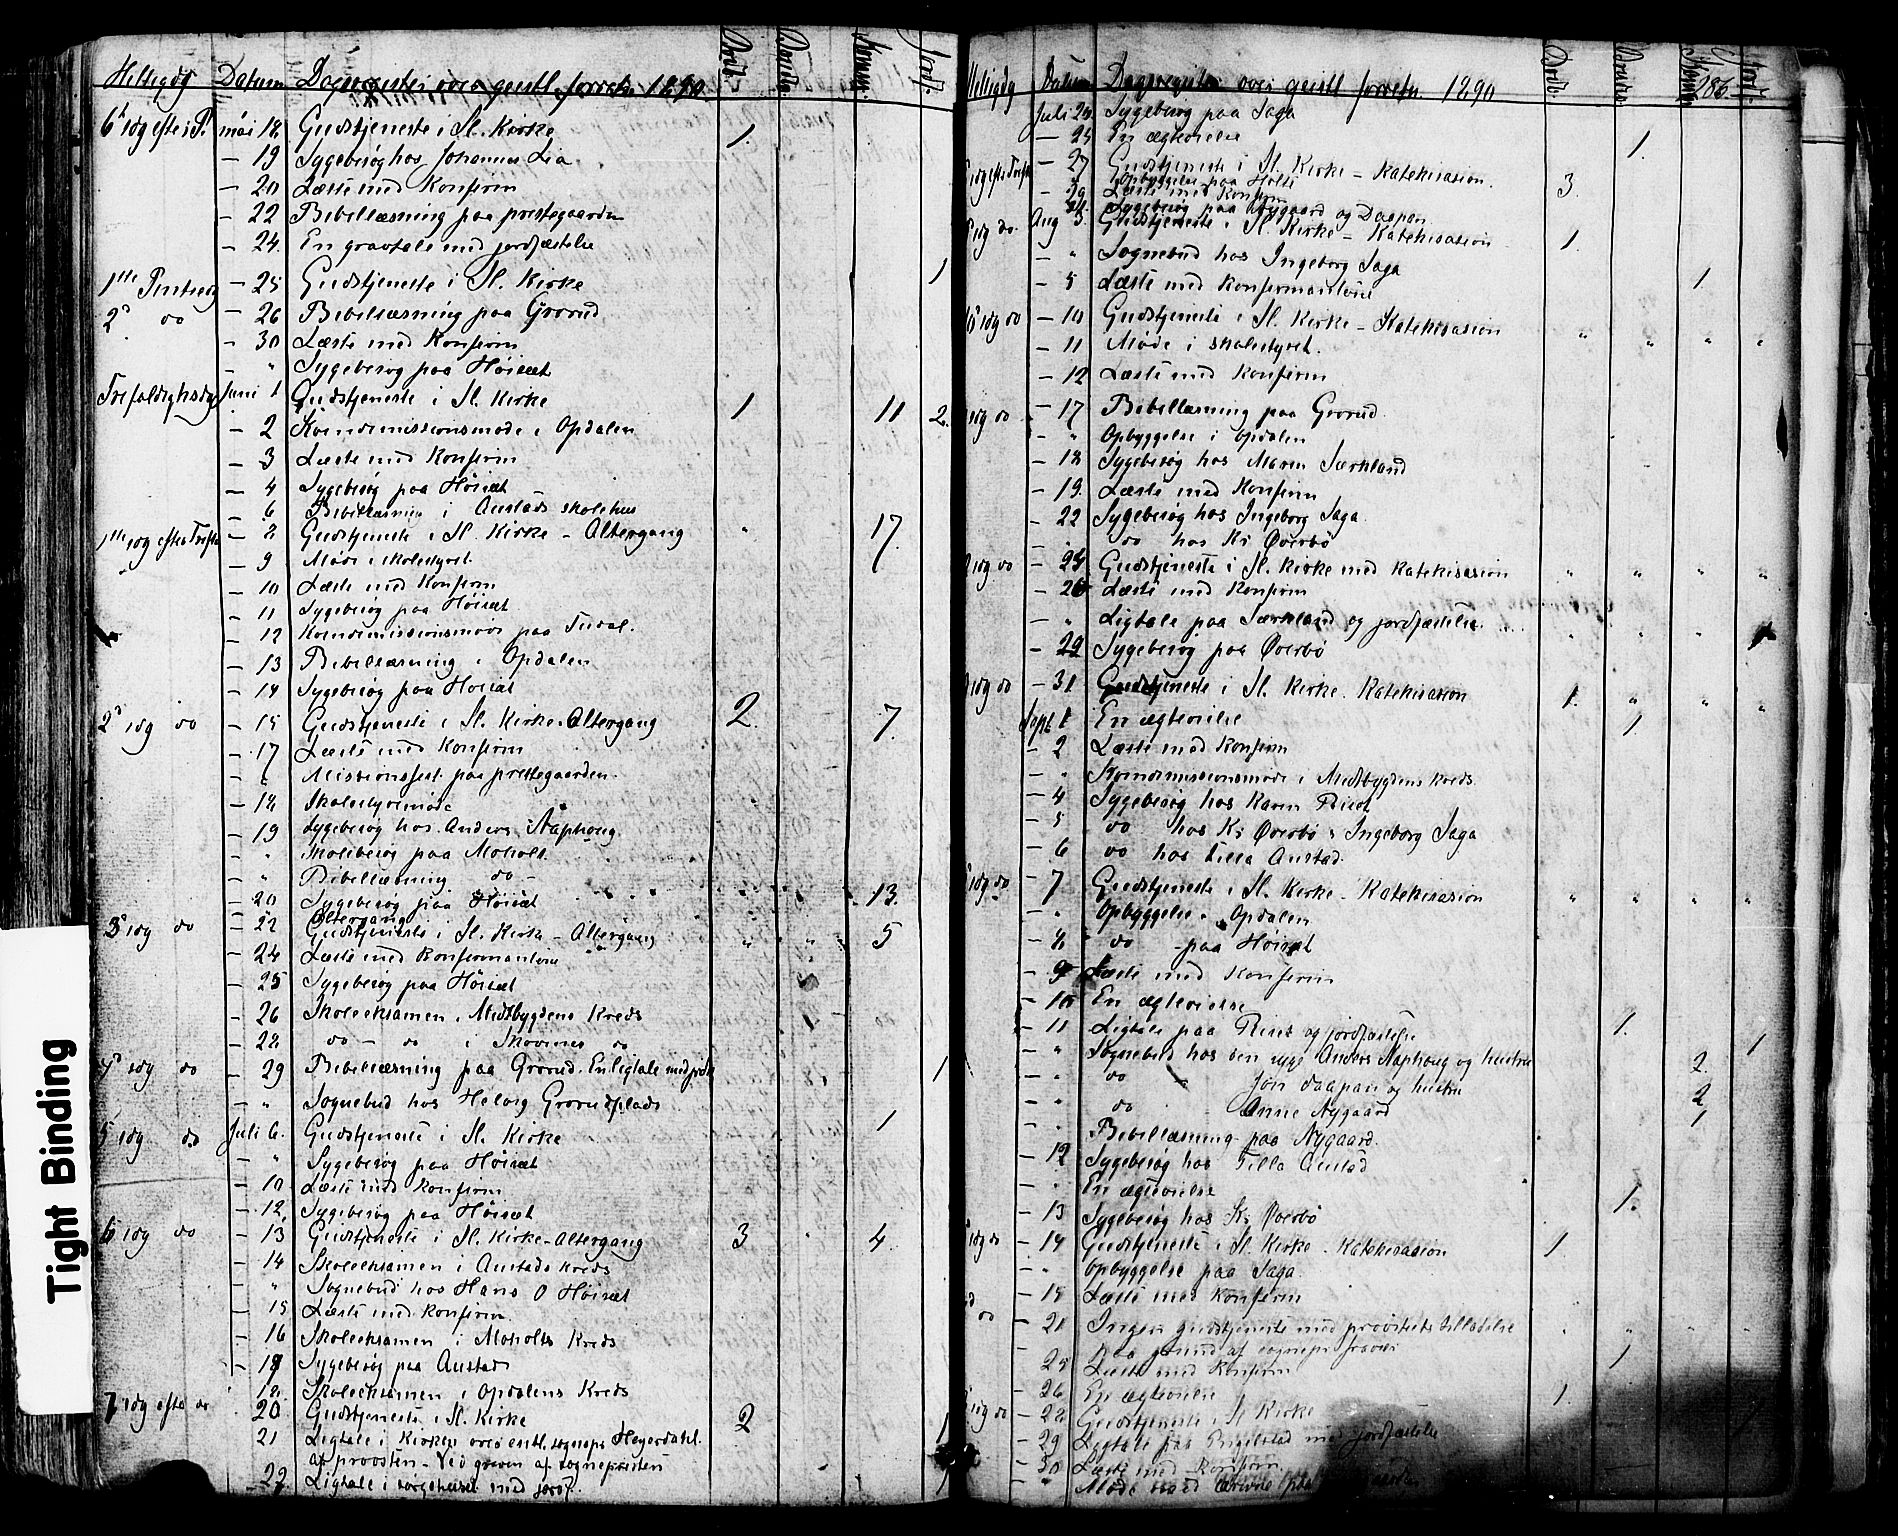 Helligdg Datum Dagregister over geistl. forretn. 1890. Døbt. Kommun. Jordf.
6te sdg efter P. mai 18 Gudstjeneste i Sl. Kirke 1.
— 19 Sygebesøg hos Johannes Lia
— 20 Læste med Konfirm
— 22 Bibellæsning paa prestegaarden
— 24. En gravtale med jordfæstelse 1
1ste Pintsedg — 25 Gudstjeneste i Sl. Kirke
2d do — 26 Bibellæsning paa Grorud
— 30 Læste med Konfirm
— " Sygebesøg paa Høisæt
Trefoldighedsdg Juni 1 Gudstjeneste i Sl. Kirke 1 11 2.
— 2 Kvindemissionsmøde i Opdalen
— 3 Læste med Konfirm
— 4 Sygebesøg paa Høisæt
— 6 Bibellæsning i Austads skolehus
1ste sdg efter Trefol — 8 Gudstjeneste i Sl. Kirke – Altergang " 17.
— 9 Møde i skolestyret.
— 10 Læste med Konfirm
— 11 Sygebesøg paa Høisæt
— 12 Kvindemissionsmøde paa
— 13 Bibellæsning i Opdalen
— 14 Sygebesøg paa Høisæt
2d sdg do — 15 Gudstjeneste i Sl. Kirke. Altergang 2. 7.
— 17 Læste med Konfirm
— " Missionsfest paa prestegaarden.
— 18 Skolestyremøde
19 Sygebesøg hos Anders Naphoug.
" Skolebesøg paa Moholt.
— " Bibellæsning do –
— 20 Sygebesøg paa Høisæt 13.
Altergang
3d sdg do — 22 Gudstjeneste i Sl. Kirke – Altergang " " 5
— 24 Læste med Konfirmanterne
— 25 Sygebesøg paa Høisæt
— 26 Skoleeksamen i Midtbygdens Kreds
— 28 do – do i Skovenes do
4d sdg do — 29 Bibellæsning paa Grorud. En ligtale med jordf 1
— " Sognebud hos Helvig Grorudplads
5 sdg do Juli 6. Gudstjeneste i Sl. Kirke 1
— " Sygebesøg paa Høisæt
— 10 Læste med Konfirm
— 12 Sygebesøg paa Høisæt
6 sdg do — 13 Gudstjeneste i Sl. Kirke – Altergang 3 4.
— 14 Skoleeksamen i Austads Kreds
" Sognebud hos Hans O Høisæt
— 15 Læste med Konfirm.
— 16 Skoleeksamen i Moholts Kreds
— 18 Sygebesøg paa Austad
18. Skoleeksamen i Opdalens Kreds
7 sdg efter do 20 Gudstjeneste i Sl. Kirke 2
21 Ligtale i Kirken over emt. sognepr Heyerdahl. 1
af provsten – Ved graven af sognepresten
— 22 Ligtale i sørgehuset med jordf. 1
Helligdg Datum Dagregister over geistl forretn 1890 Døbt. Kommun. 286. Jordf.
Juli 24 Sygebesøg paa Saga
— 25 En ægtevielse 1.
sdg efter Trefol — 27 Gudstjeneste i Sl. Kirke – Katekisasion. 3.
Opbyggelse paa Holte
Læste med Konfirm
Sygebesøg paa Nygaard og Daapan
sdg do. Aug 3. Gudstjeneste i Sl. Kirke – Katekisasion 1.
— " Sognebud hos Ingeborg Saga 1
— 5 Læste med Konfirmanterne
10 sdg do — 10 Gudstjeneste i Sl. Kirke – Katekisasion " " " "
— 11 Møde i skolestyret.
— 12 Læste med Konfirm
sdg do — 17 Bibellæsning paa Grorud
— " Opbyggelse i Opdalen
— 18 Sygebesøg hos Maren Særkland
— 19. Læste med Konfirm
— 22 Sygebesøg hos Ingeborg Saga
— " do hos Kr Øverbø
sdg do — 24 Gudstjeneste i Sl. Kirke med Katekisasion " " " "
— 26 Læste med Konfirm
— " Ligtale paa Særkland og jordfæstelse. " " " 1
— 29 Sygebesøg paa Øverbø
sdg do — 31 Gudstjeneste i Sl. Kirke. Katekisasion 1. " " "
Sept. 1 En ægtevielse 1
— 2 Læste med Konfirm
— " Kvindemissionsmøde i Midtbygdens Kreds.
— 4 Sygebesøg hos Karen
— 5 do hos Kr Øverbø & Ingeborg Saga
— 6 do hos Lilla Austad.
sdg do — 7 Gudstjeneste i Sl. Kirke – Katekisasion " " " "
— " Opbyggelse i Opdalen
— 8 do – paa Høisæt
— 9 Læste med Konfirm
— 10 En ægtevielse 1.
— 11 Ligtale paa og jordfæstelse 1
— " Sognebud hos den syge Anders Naphoug og hustru 2.
— " do Jon Daapan og hustru 2
— " do Anne Nygaard 1
— " Bibellæsning paa Nygaard.
— 12 Sygebesøg hos Lilla Austad
— " En ægtevielse 1.
— 13 Sygebesøg hos Kr Øverbø
sdg do — 14 Gudstjeneste i Sl. Kirke – Katekisasion 1
— " Opbyggelse paa Saga.
— 15 Læste med Konfirm
do — 21 Ingen gudstjeneste med provstens tilladelse " " " "
paa grund af sognepr fravær
— 25 Læste med Konfirm
— 26 En ægtevielse 1
sdg do — 28 Gudstjeneste i Sl Kirke 1.
— 29 Ligtale paa med jordfæstelse
— 30 Læste med Konfirm
— " Møde
Tight Binding